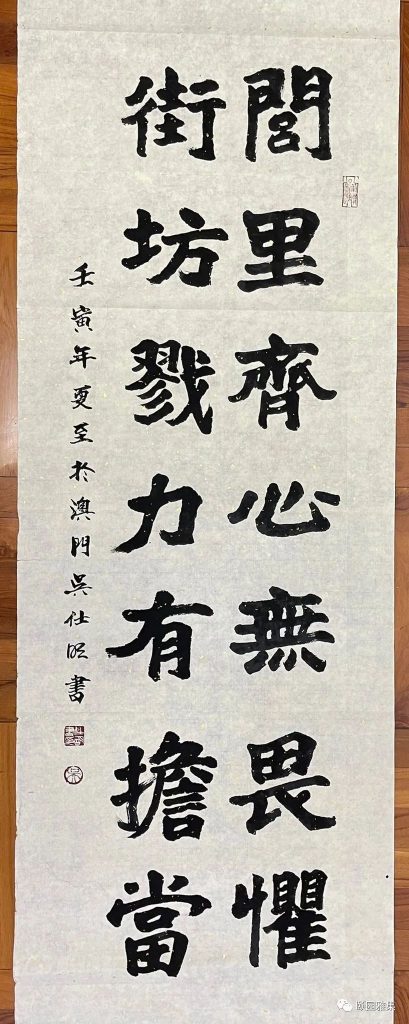 閭里齊心無畏懼
街坊戮力有擔當
壬寅年夏至於澳門吳仕明書